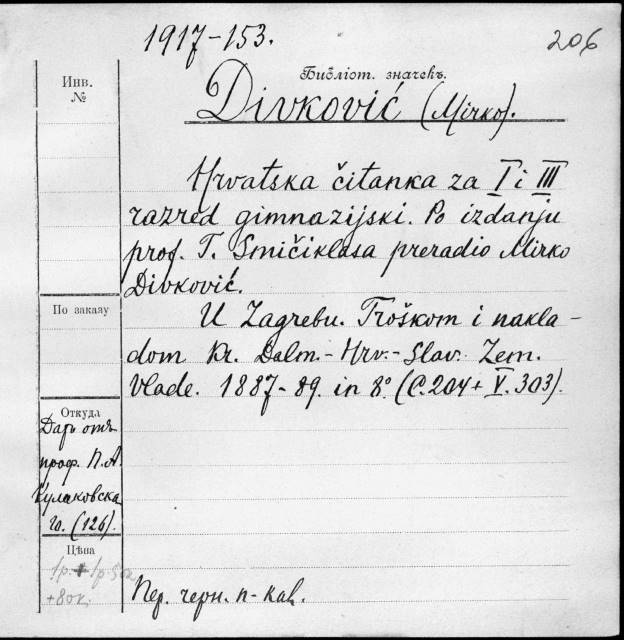 1917-153.
206
Инв.
№
Библіот. значекъ.
Divković (Mirko).
Hrvatska čitanka za I i III
razred gimnazijski. Po izdanju
prof. T. Smičiklasa preradio Mirko
Divković.
По заказу
U Zagrebu. Troškom i nakla-
dom kr. Dalm.-Hrv.-Slav. Zem.
vlade. 1887-89. in 8° (C. 204 + V. 303).
Откуда
Даръ отъ
проф. П. А.
Кулаковска
го. (126).
Цѣна
1р. + 1р. 50к.
+ 80к.
Пер. черн. п-кал.